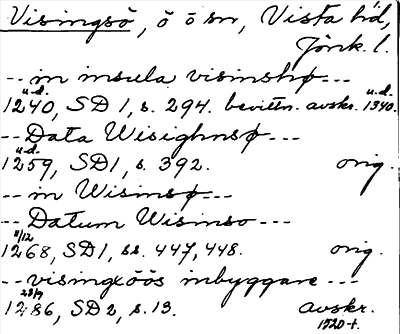 Visingsö, ö ö sn, Vista hd,
Jönk. l.
-- in insula visinshø ---
u.d. u.d.
1240, SD 1, s. 294. bevittn. avskr. 1340.
-- Data Wisighnsø ---
u.d.
1259, SD 1, s. 392. orig.
-- in Wisinsø ---
-- Datum Wisinso ---
11/12
1268, SD 1, ss. 447, 448. orig.
-- visingxöös inbyggare ---
28/9
1286, SD 2, s. 13. avskr.
1520-t.